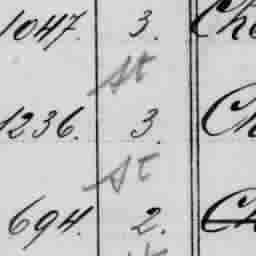 1047. 3. Ch
st
1236. 3. Ch
st
694. 2. Ch